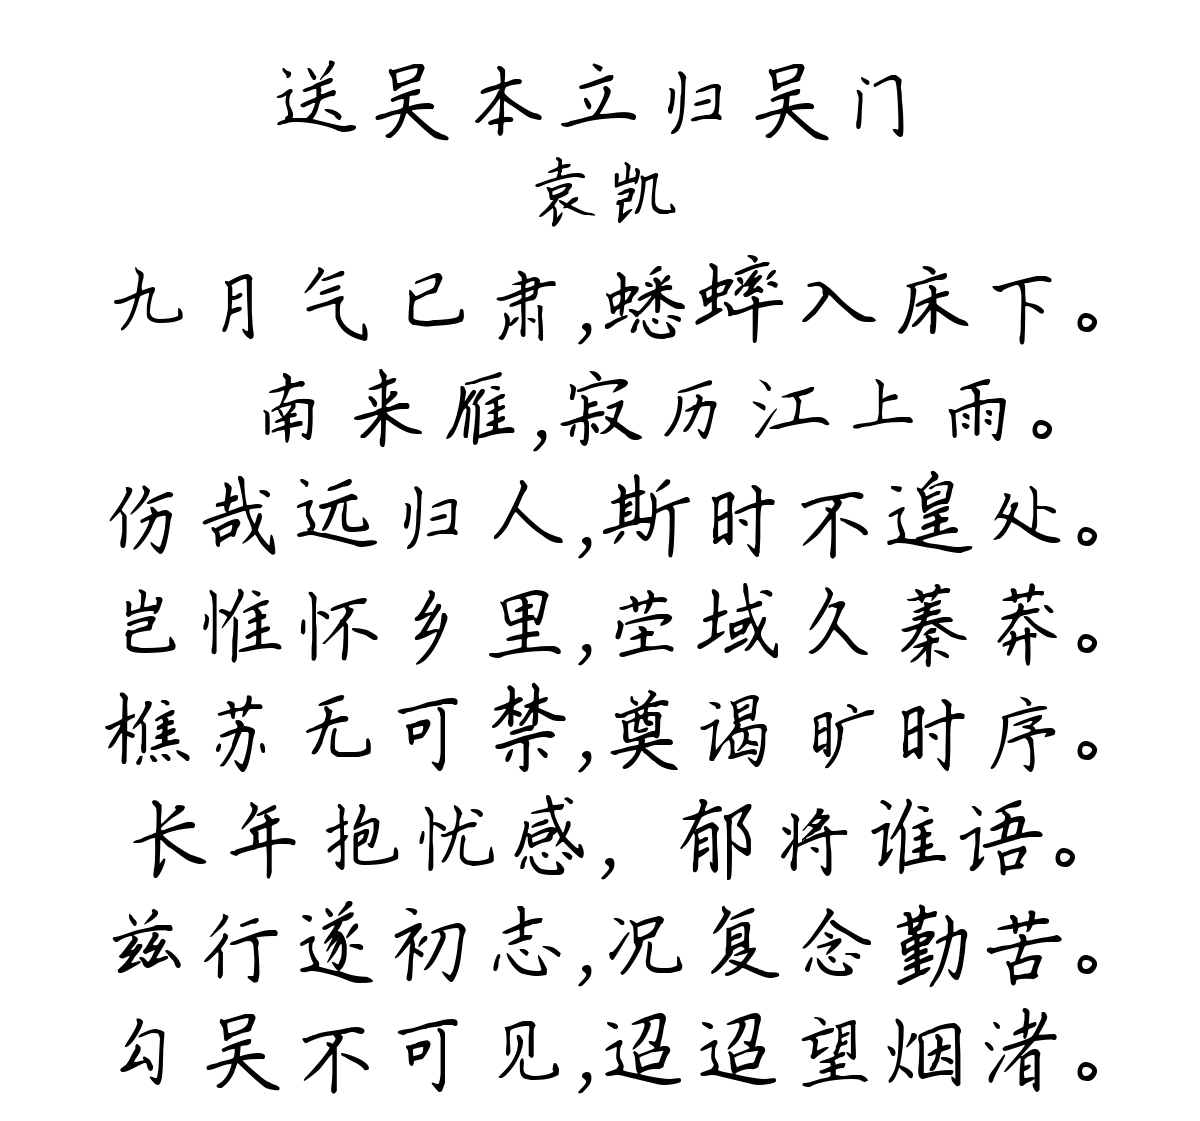 送吴本立归吴门
袁凯
九月气已肃,蟋蟀入床下。
南来雁,寂历江上雨。
伤哉远归人,斯时不遑处。
岂惟怀乡里,茔域久蓁莽。
樵苏无可禁,奠谒旷时序。
长年抱忧感，郁将谁语。
兹行遂初志,况复念勤苦。
勾吴不可见,迢迢望烟渚。